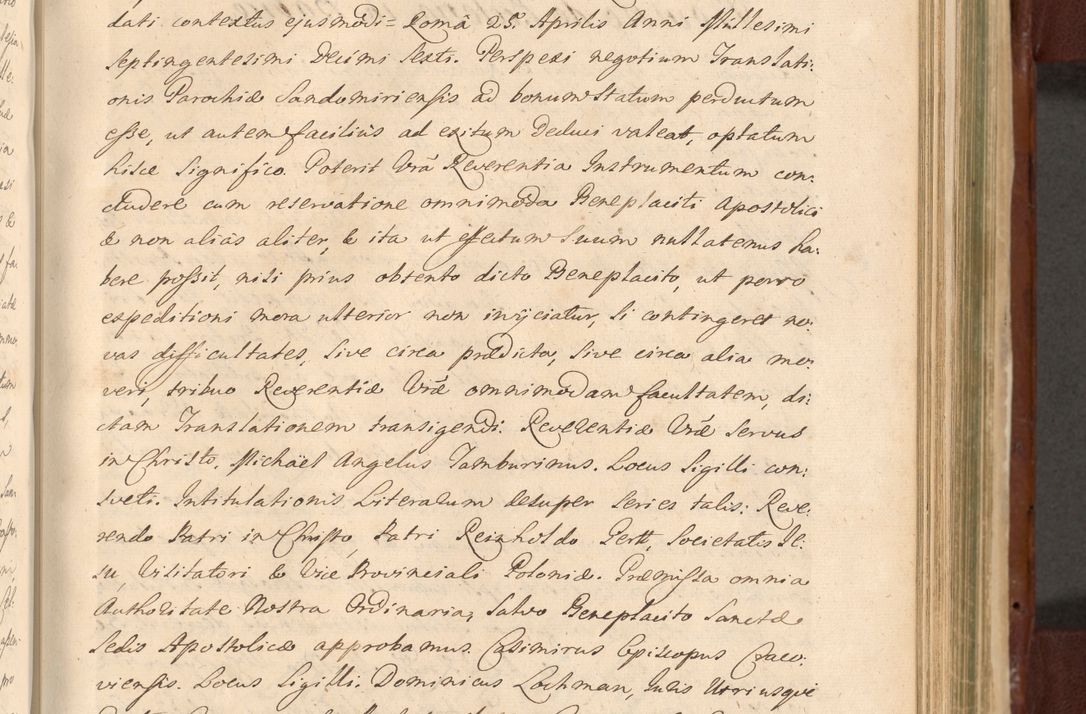 dati contextus ejusmodi = Româ 25. Aprilis Anni Millesimi
Septingentesimi Decimi Sexti. Perspexi negotium Translati:
onis Parochiæ Sandomiriensis ad bonum Statum perductum
esse, ut autem faciliùs ad exitum Deduci valeat, optatum
hisce Significo. Poterit Vrâ Reverentia Instrumentum con:
cludere cum reservatione omnimoda Beneplaciti Apostolici
& non aliàs aliter, & ita ut effectum Suum nullatenus ha:
bere possit, nisi prius obtento dicto Beneplacito, ut porro
expeditioni mora ulterior non inijciatur, Si contingeret no:
vas difficultates, Sive circa prædicta, Sive circa alia mo:
veri, tribuo Reverentiæ Vræ omnimodam facultatem, di:
ctam Translationem transigendi. Reverentiæ Vræ Servus
in Christo, Michäel Angelus Tamburinus. Locus Sigilli con:
sveti. Intitulationis Literarum desuper Series talis: Reve:
rendo Patri in Christo, Patri Reinholdo Gertt, Societatis Je:
su Visitatori & Vice Provinciali Poloniæ. Præmissa omnia
Authoritate Nostra Ordinaria, Salvo Beneplacito Sanctæ
Sedis Apostolicæ approbamus. Casimirus Episcopus Craco:
viensis. Locus Sigilli. Dominicus Lochman, Juris Utriusque